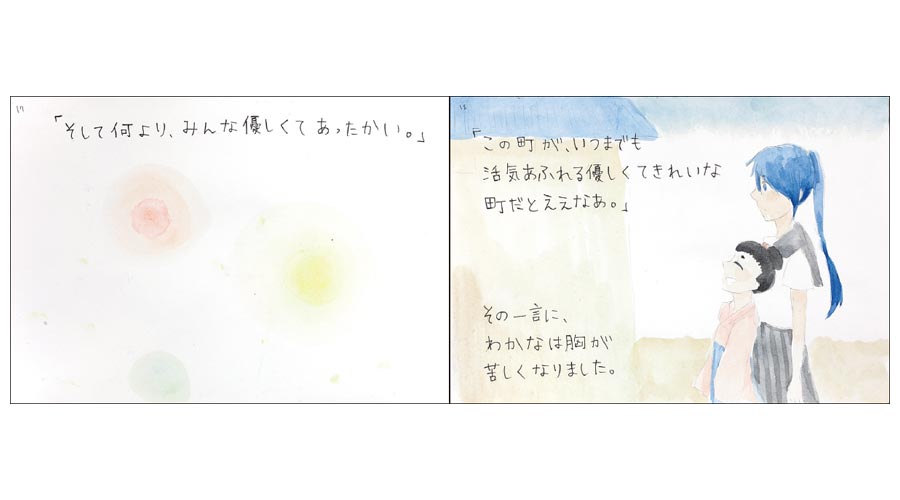 17
「そして何より、みんな優しくてあったかい。」
18
「この町が、いつまでも
活気あふれる優しくてきれいな
町だとええなあ。」
その一言に、
わかなは胸が
苦しくなりました。